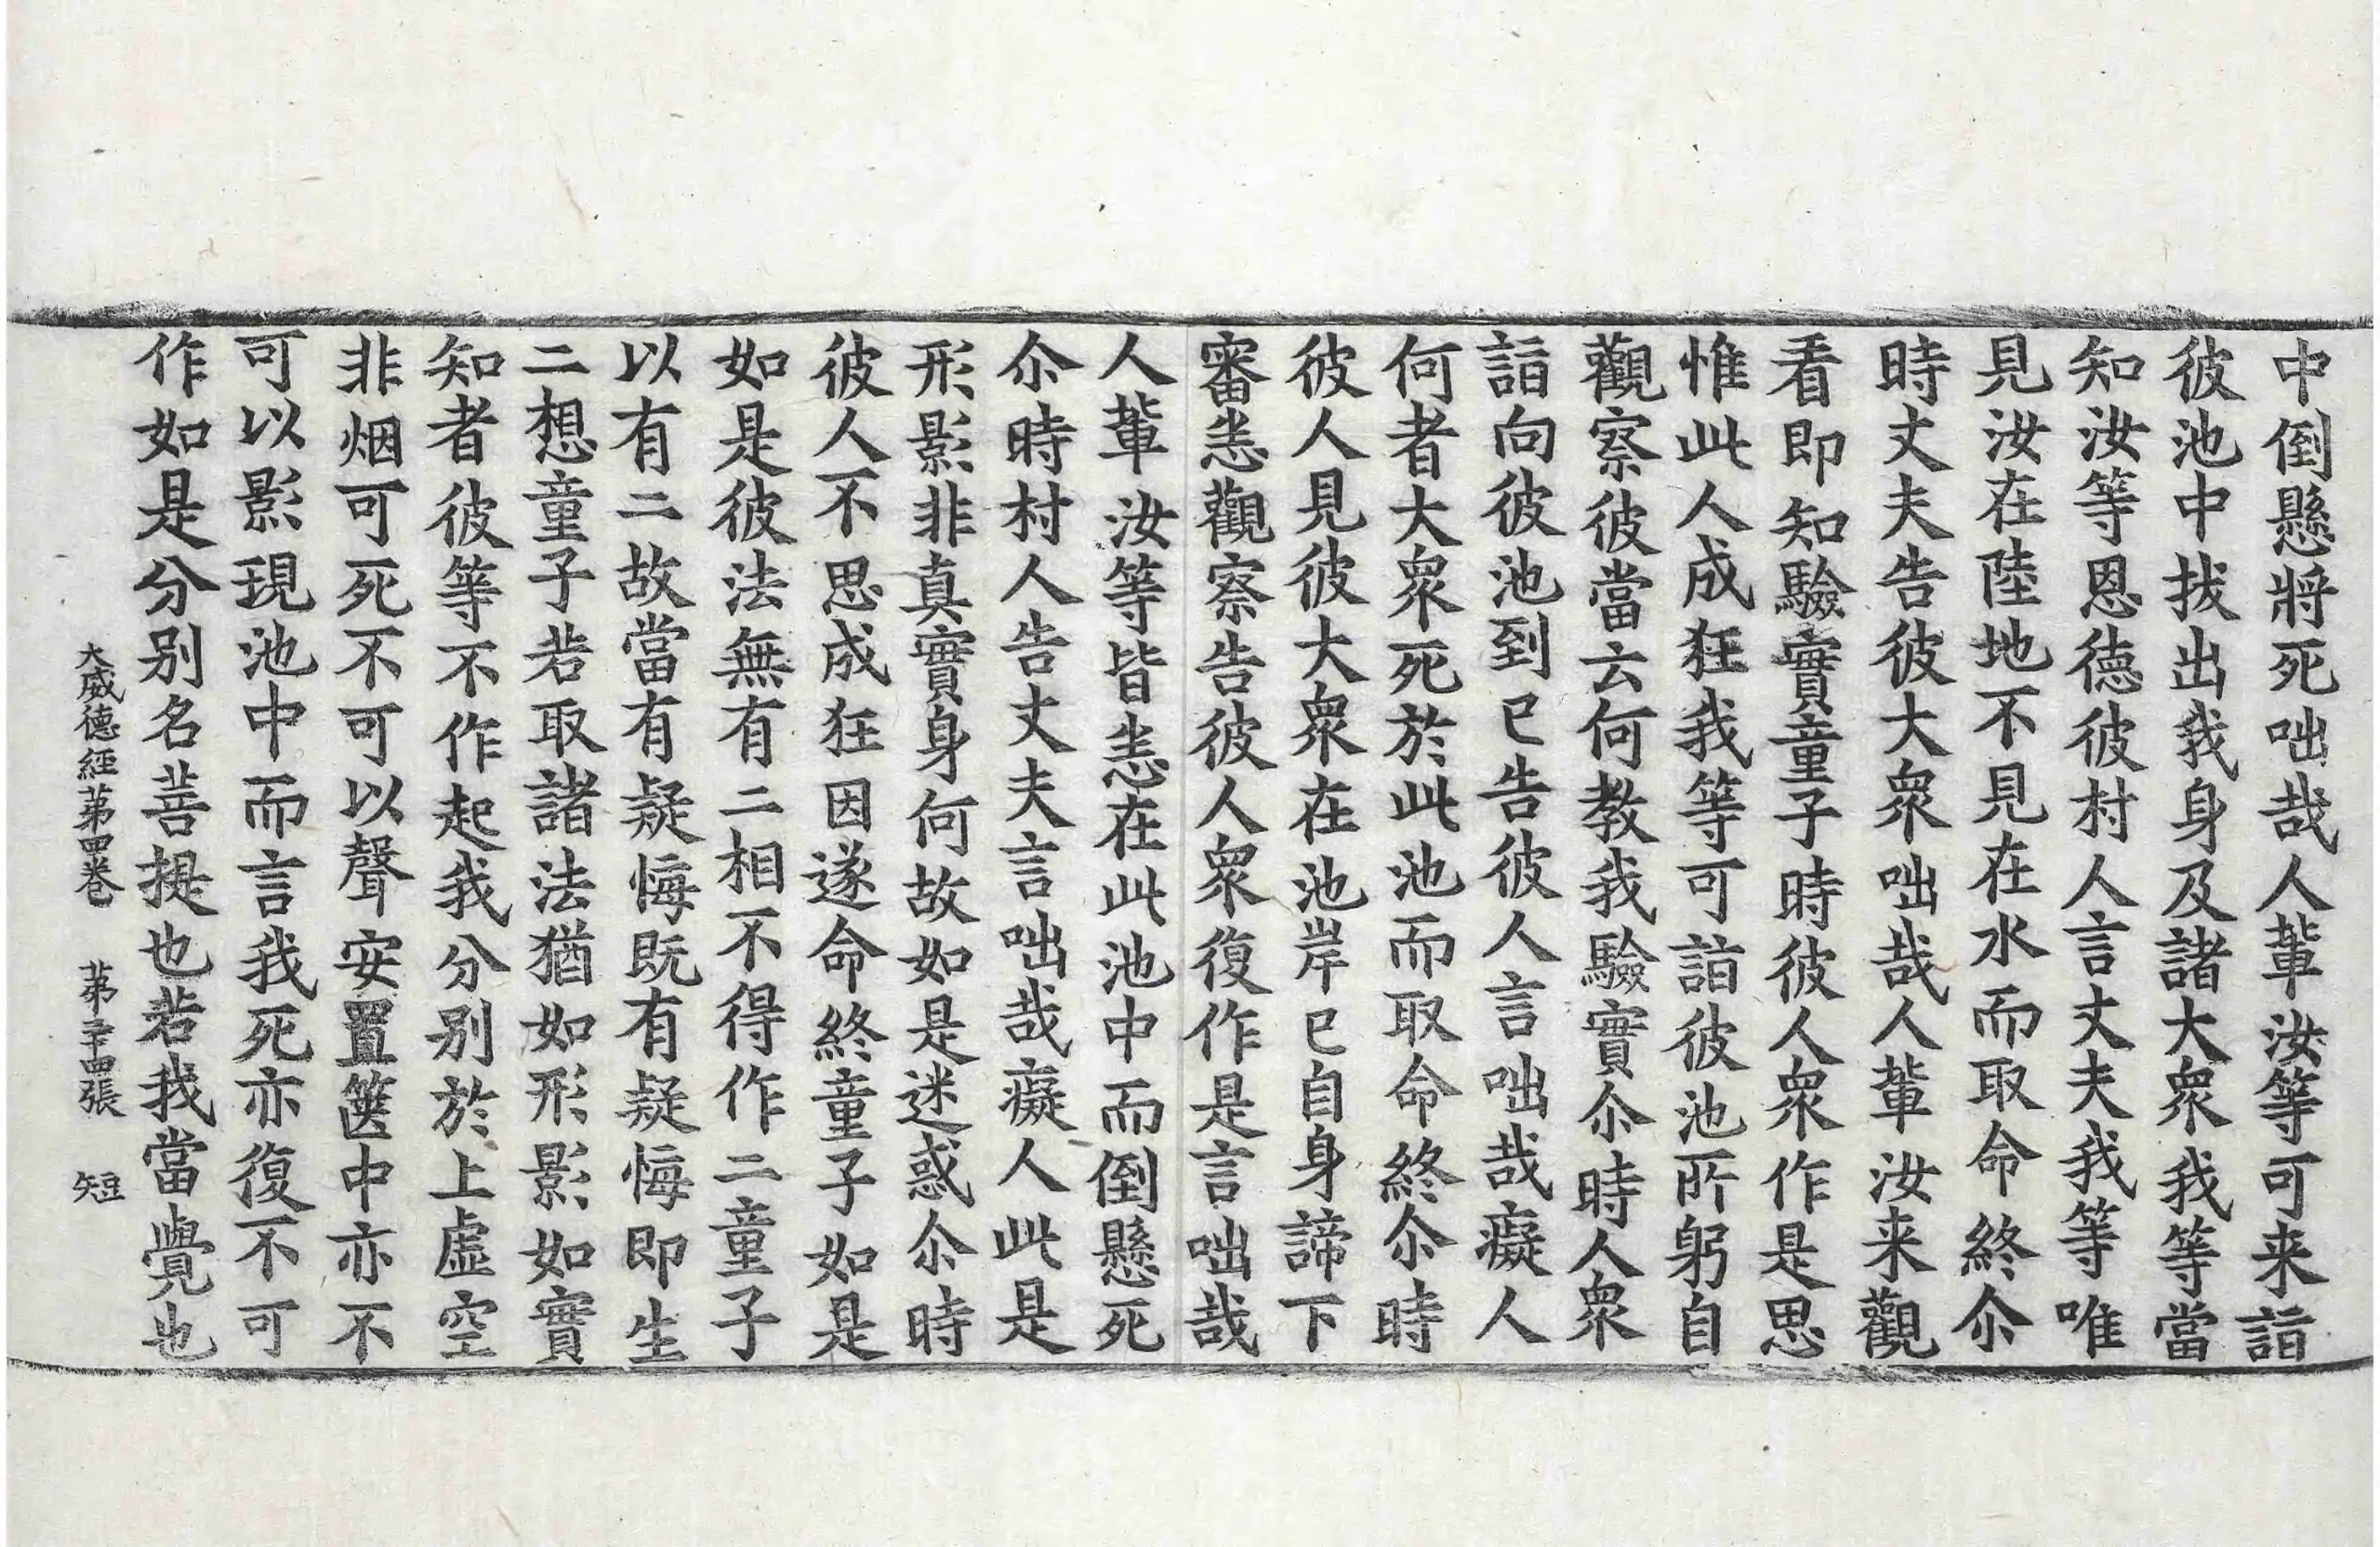 中倒懸將死咄哉人軰汝等可来詣
彼池中拔出我身及諸大衆我等當
知汝等恩德彼村人言丈夫我等唯
見汝在陸地不見在水而取命終尒
時丈夫告彼大衆咄哉人軰汝来觀
看即知驗實童子時彼人衆作是思
惟此人成狂我等可詣彼池所躬自
觀察彼當云何教我驗實尒時人衆
詣向彼池到已告彼人言咄哉癡人
何者大衆死於此池而取命終尒時
彼人見彼大衆在池岸已自身諦下
審悉觀察告彼人衆復作是言咄哉
人軰汝等皆悉在此池中而倒懸死
尒時村人告丈夫言咄哉癡人此是
形影非真實身何故如是迷惑尒時
彼人不思成狂因遂命終童子如是
如是彼法無有二相不得作二童子
以有二故當有疑悔既有疑悔即生
二想童子若取諸法猶如形影如實
知者彼等不作起我分别於上虛空
非烟可死不可以聲安置篋中亦不
可以影現池中而言我死亦復不可
作如是分别名菩提也若我當覺也
大威德經第四卷　第二十四張　短